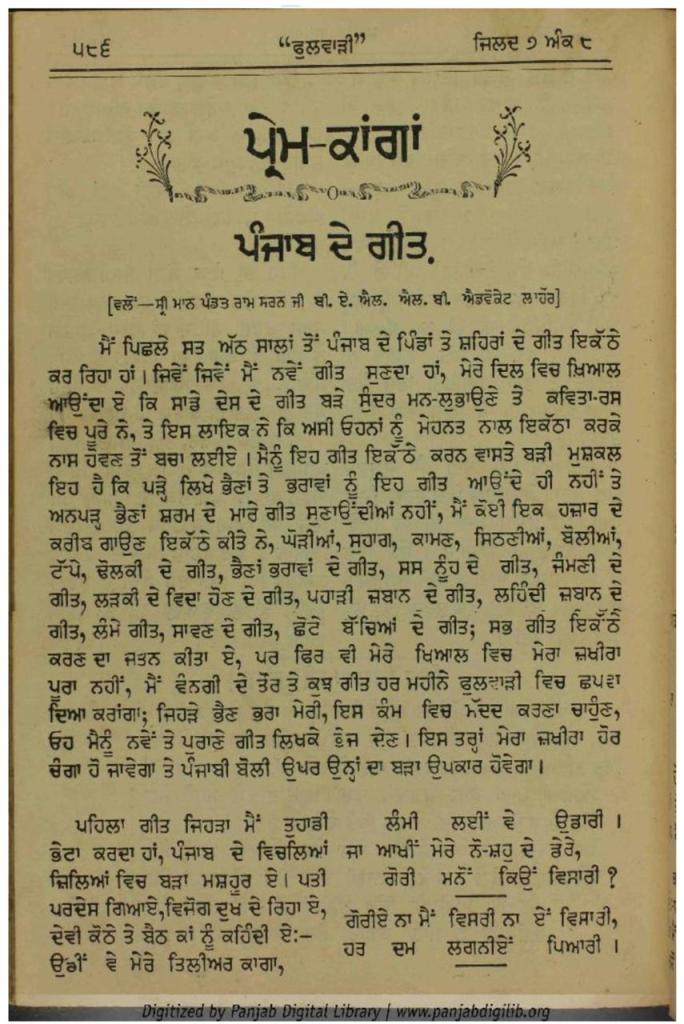 ੫੮੬ “ਫੁਲਵਾੜੀ” ਜਿਲਦ ੭ ਅੰਕ ੮
ਪ੍ਰੇਮ-ਕਾਂਗਾਂ
ਪੰਜਾਬ ਦੇ ਗੀਤ.
[ਵਲੋਂ—ਸ੍ਰੀ ਮਾਨ ਪੰਡਤ ਰਾਮ ਸਰਨ ਜੀ ਬੀ. ਏ. ਐਲ. ਐਲ. ਬੀ. ਐਡਵੋਕੇਟ ਲਾਹੌਰ]
ਮੈਂ ਪਿਛਲੇ ਸਤ ਅੱਠ ਸਾਲਾਂ ਤੋਂ ਪੰਜਾਬ ਦੇ ਪਿੰਡਾਂ ਤੇ ਸ਼ਹਿਰਾਂ ਦੇ ਗੀਤ ਇਕੱਠੇ
ਕਰ ਰਿਹਾ ਹਾਂ। ਜਿਵੇਂ ਜਿਵੇਂ ਮੈਂ ਨਵੇਂ ਗੀਤ ਸੁਣਦਾ ਹਾਂ, ਮੇਰੇ ਦਿਲ ਵਿਚ ਖ਼ਿਆਲ
ਆਉਂਦਾ ਏ ਕਿ ਸਾਡੇ ਦੇਸ ਦੇ ਗੀਤ ਬੜੇ ਸੁੰਦਰ ਮਨ-ਲੁਭਾਉਣੇ ਤੇ ਕਵਿਤਾ-ਰਸ
ਵਿਚ ਪੂਰੇ ਨੇ, ਤੇ ਇਸ ਲਾਇਕ ਨੇ ਕਿ ਅਸੀ ਓਹਨਾਂ ਨੂੰ ਮੇਹਨਤ ਨਾਲ ਇਕੱਠਾ ਕਰਕੇ
ਨਾਸ ਹੋਵਣ ਤੋਂ ਬਚਾ ਲਈਏ। ਮੈਨੂੰ ਇਹ ਗੀਤ ਇਕੱਠੇ ਕਰਨ ਵਾਸਤੇ ਬੜੀ ਮੁਸ਼ਕਲ
ਇਹ ਹੈ ਕਿ ਪੜ੍ਹੇ ਲਿਖੇ ਭੈਣਾਂ ਤੇ ਭਰਾਵਾਂ ਨੂੰ ਇਹ ਗੀਤ ਆਉਂਦੇ ਹੀ ਨਹੀਂ ਤੇ
ਅਨਪੜ੍ਹ ਭੈਣਾਂ ਸ਼ਰਮ ਦੇ ਮਾਰੇ ਗੀਤ ਸੁਣਾਉਂਦੀਆਂ ਨਹੀਂ, ਮੈਂ ਕੋਈ ਇਕ ਹਜ਼ਾਰ ਦੇ
ਕਰੀਬ ਗਾਉਣ ਇਕੱਠੇ ਕੀਤੇ ਨੇ, ਘੋੜੀਆਂ, ਸੁਹਾਗ, ਕਾਮਣ, ਸਿਠਣੀਆਂ, ਬੋਲੀਆਂ,
ਟੱਪੇ, ਢੋਲਕੀ ਦੇ ਗੀਤ, ਭੈਣਾਂ ਭਰਾਵਾਂ ਦੇ ਗੀਤ, ਸਸ ਨੂੰਹ ਦੇ ਗੀਤ, ਜੰਮਣੀ ਦੇ
ਗੀਤ, ਲੜਕੀ ਦੇ ਵਿਦਾ ਹੋਣ ਦੇ ਗੀਤ, ਪਹਾੜੀ ਜ਼ਬਾਨ ਦੇ ਗੀਤ, ਲਹਿੰਦੀ ਜ਼ਬਾਨ ਦੇ
ਗੀਤ, ਲੰਮੇ ਗੀਤ, ਸਾਵਣ ਦੇ ਗੀਤ, ਛੋਟੇ ਬੱਚਿਆਂ ਦੇ ਗੀਤ; ਸਭ ਗੀਤ ਇਕੱਠੇ
ਕਰਣ ਦਾ ਜਤਨ ਕੀਤਾ ਏ, ਪਰ ਫਿਰ ਵੀ ਮੇਰੇ ਖਿਆਲ ਵਿਚ ਮੇਰਾ ਜ਼ਖੀਰਾ
ਪੂਰਾ ਨਹੀਂ, ਮੈਂ ਵੰਨਗੀ ਦੇ ਤੌਰ ਤੇ ਕੁਝ ਗੀਤ ਹਰ ਮਹੀਨੇ ਫੁਲਵਾੜੀ ਵਿਚ ਛਪਵਾ
ਦਿਆ ਕਰਾਂਗਾ; ਜਿਹੜੇ ਭੈਣ ਭਰਾ ਮੇਰੀ, ਇਸ ਕੰਮ ਵਿਚ ਮੱਦਦ ਕਰਣਾ ਚਾਹੁੰਣ,
ਓਹ ਮੈਨੂੰ ਨਵੇਂ ਤੇ ਪੁਰਾਣੇ ਗੀਤ ਲਿਖਕੇ ਭੇਜ ਦੇਣ। ਇਸ ਤਰ੍ਹਾਂ ਮੇਰਾ ਜ਼ਖੀਰਾ ਹੋਰ
ਚੰਗਾ ਹੋ ਜਾਵੇਗਾ ਤੇ ਪੰਜਾਬੀ ਬੋਲੀ ਉਪਰ ਉਨ੍ਹਾਂ ਦਾ ਬੜਾ ਉਪਕਾਰ ਹੋਵੇਗਾ।
ਪਹਿਲਾ ਗੀਤ ਜਿਹੜਾ ਮੈਂ ਤੁਹਾਡੀ
ਭੇਟਾ ਕਰਦਾ ਹਾਂ, ਪੰਜਾਬ ਦੇ ਵਿਚਲਿਆਂ
ਜ਼ਿਲਿਆਂ ਵਿਚ ਬੜਾ ਮਸ਼ਹੂਰ ਏ। ਪਤੀ
ਪਰਦੇਸ ਗਿਆਏ, ਵਿਜੋਗ ਦੁਖ ਦੇ ਰਿਹਾ ਏ,
ਦੇਵੀ ਕੋਠੇ ਤੇ ਬੈਠ ਕਾਂ ਨੂੰ ਕਹਿੰਦੀ ਏ:–
ਉਡੀਂ ਵੇ ਮੇਰੇ ਤਿਲੀਅਰ ਕਾਗਾ,
ਲੰਮੀ ਲਈਂ ਵੇ ਉਡਾਰੀ।
ਜਾ ਆਖੀਂ ਮੇਰੇ ਨੌ-ਸ਼ਹੁ ਦੇ ਡੇਰੇ,
ਗੋਰੀ ਮਨੋਂ ਕਿਉਂ ਵਿਸਾਰੀ?
ਗੋਰੀਏ ਨਾ ਮੈਂ ਵਿਸਰੀ ਨਾ ਏਂ ਵਿਸਾਰੀ,
ਹਰ ਦਮ ਲਗਨੀਏਂ ਪਿਆਰੀ।
Digitized by Panjab Digital Library | www.panjabdigilib.org